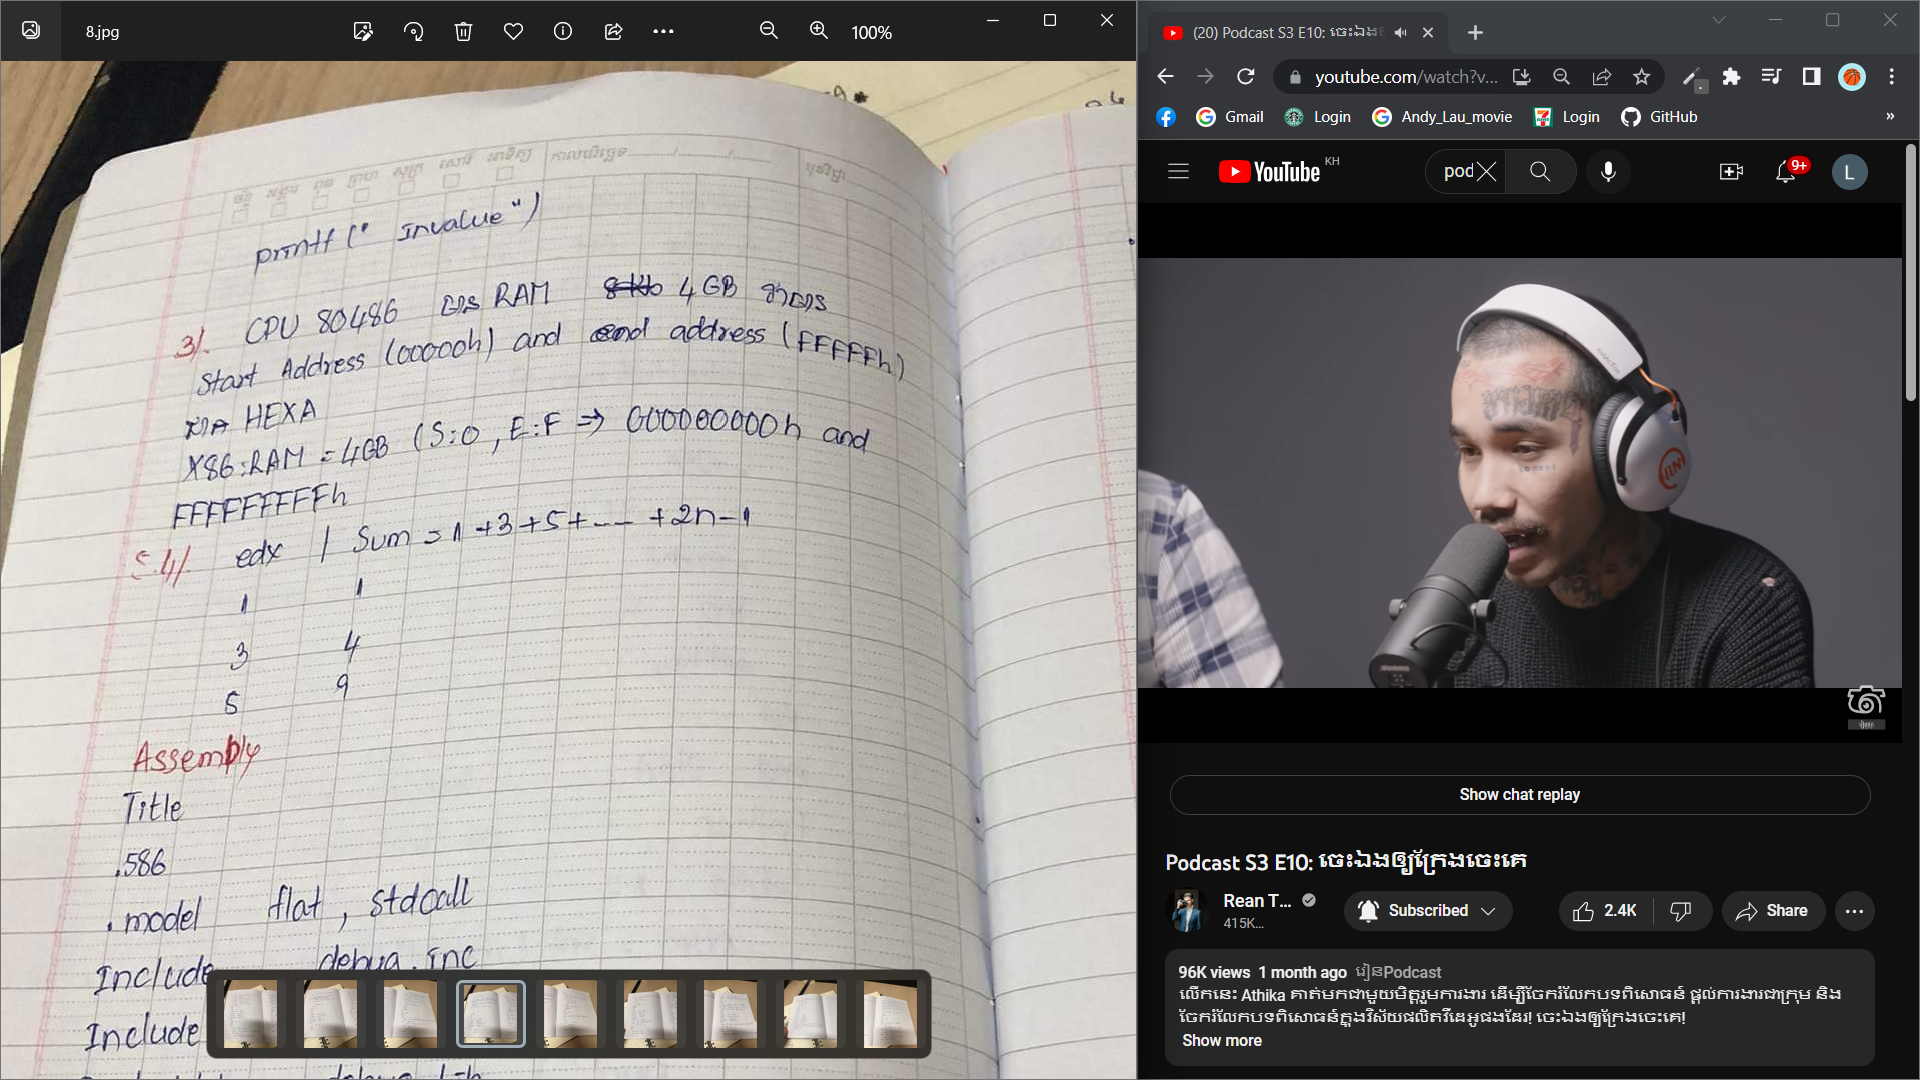 8.jpg
100%
printf (" Invalue")
3/. CPU 80486 មាន RAM 4GB
Start Address (00000h) and end address (FFFFFh)
HEXA
X86:RAM = 4GB (S:0 , E:F => 000000000h and
FFFFFFFFFh
4/ edx / Sum = 1+3+5+---- +2n-1
1 1
3 4
5 9
Assembly
Title
.586
.model flat , stdcall
Include debug.inc
Include
(20) Podcast S3 E10: ចេះឯង
youtube.com/watch?v...
Gmail Login Andy_Lau_movie Login GitHub »
YouTube KH
pod
9+
L
Show chat replay
Podcast S3 E10: ចេះឯងឲ្យក្រែងចេះគេ
Rean T...
415K...
Subscribed
2.4K
Share
96K views 1 month ago រៀនPodcast
លើកនេះ Athika គាត់មកជាមួយមិត្តរួមការងារ ដើម្បីចែករំលែកបទពិសោធន៍ ផ្តល់ការងារជាក្រុម និង
ចែករំលែកបទពិសោធន៍ក្នុងវិស័យផលិតវីដេអូផងដែរ! ចេះឯងឲ្យក្រែងចេះគេ!
Show more